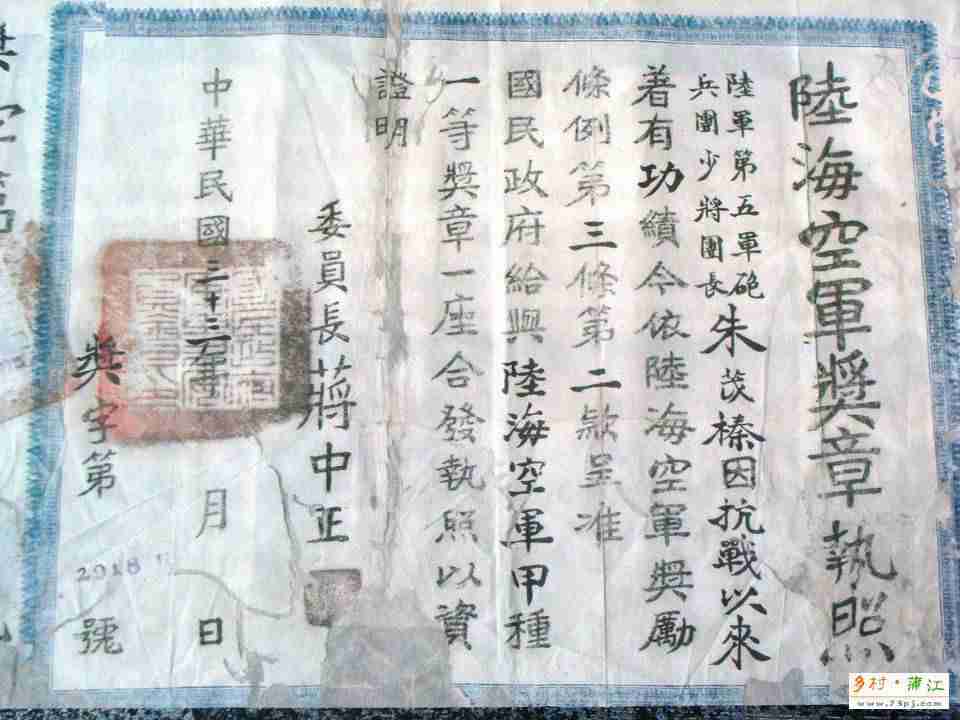 陸海空軍獎章執照
陸軍第五軍砲
兵團少將團長
朱茂榛因抗戰以來
著有功績今依陸海空軍獎勵
條例第三條第二款呈准
國民政府給與陸海空軍甲種
一等獎章一座合發執照以資
證明
委員長蔣中正
中華民國三十三年 月 日
獎字第2918號
乡村·蒲江
www.73pj.com